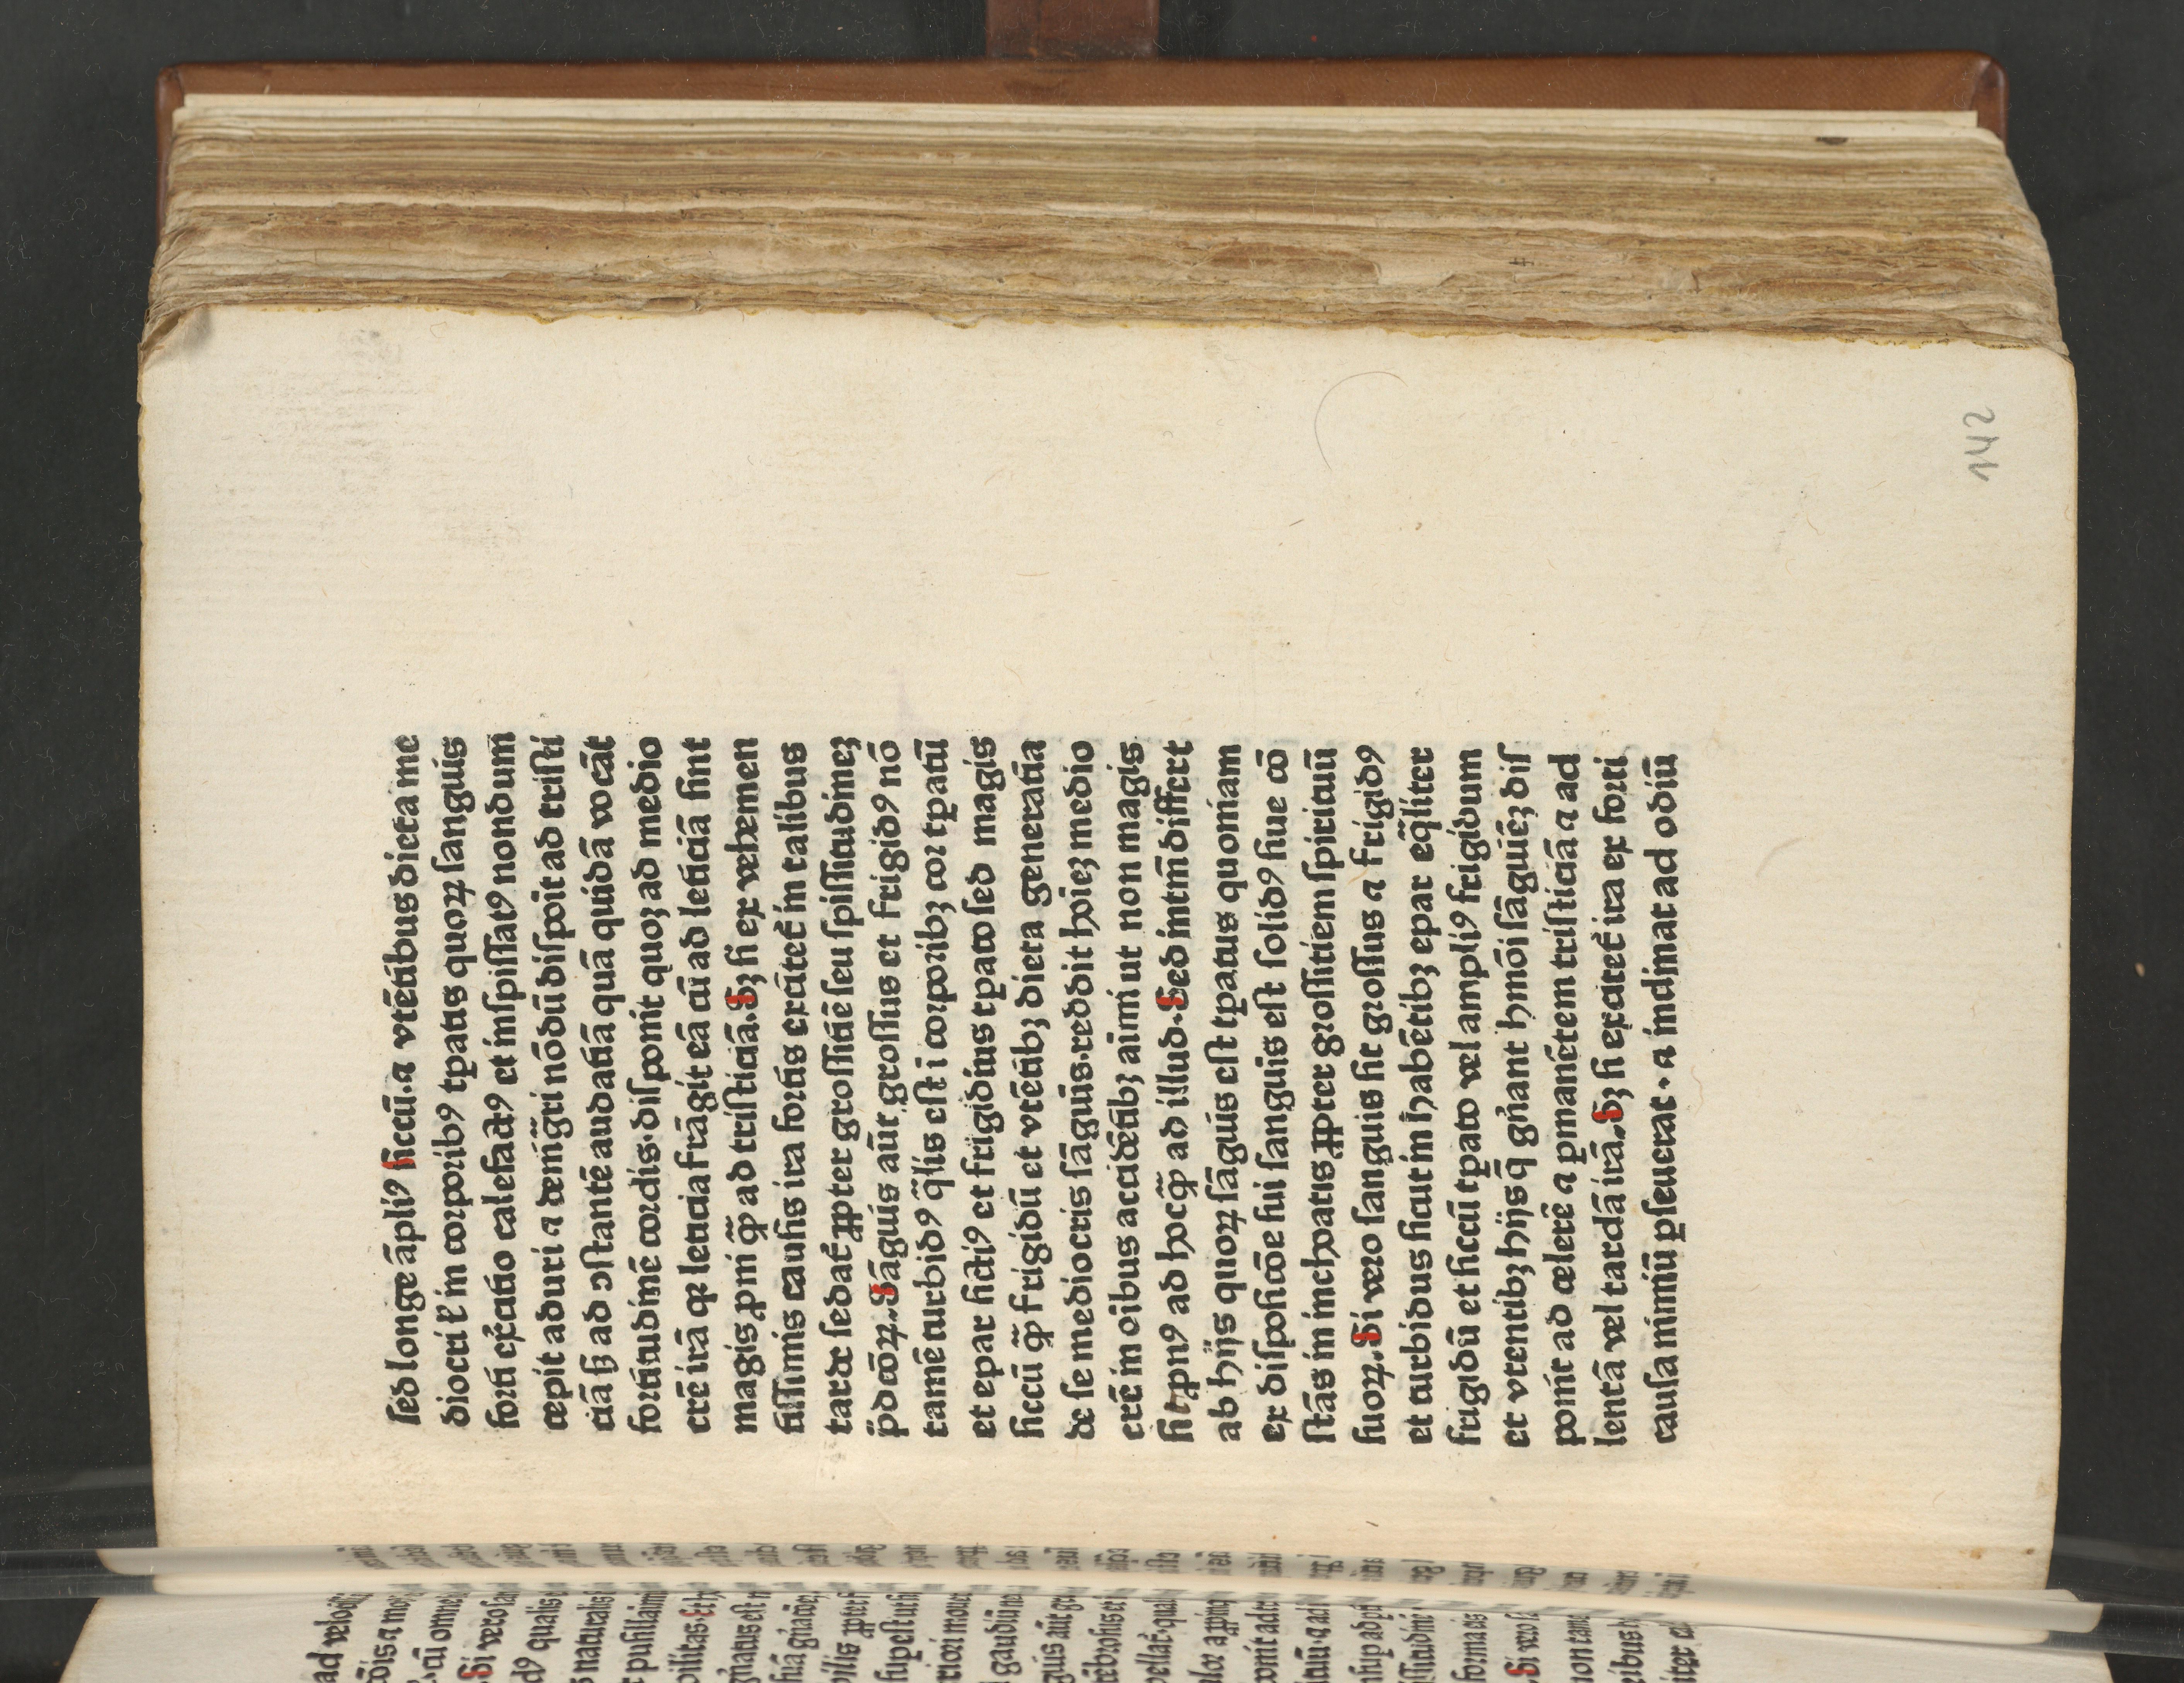 142
sed longe āpliꝰ siccū. ⁊ vtētibus dieta me
diocri ł in corporibꝰ tꝑatis quoꝝ sanguis
forti exẽcitio calefactꝰ et inspissatꝰ nondum
cepit aduri ⁊ demg̃ri nōdū dispoīt ad tristi
ciā sꝫ ad ↄstantē audatiā quā quidā vocāt
fortitudinē cordis. disponit quoꝫ ad medio
crē irā qꝛ leticia frāgit eā cū ad leticiā sint
magis ꝓni q̃ꝫ ad tristiciā. Sꝫ si ex vehemen
tissimis causis ira fortis excitet̄ in talibus
tarde sedat̄ ꝓpter grossitiē seu spissitudinēꝫ
p̄dcōꝝ. Sāguis aūt grossus et frigidꝰ nō
tamē turbidꝰ q̃lis est ī corporibꝫ cor tꝑatū
et epar sictiꝰ et frigidius tꝑato sed magis
siccū q̃ꝫ frigidū et vtētibꝫ dieta generatīa
de se mediocris sāguīs. reddit hoīeꝫ medio
crē in oībus accidētibꝫ aīmi ut non magis
sit ꝓnꝰ ad hoc q̃ꝫ ad illud. Sed intm̄ differt
ab hijs quoꝝ sāguis est tꝑatus quoniam
ex dispositōe sui sanguis est solidꝰ siue cō
stās in inchoatis ꝓpter grossitiem spirituū
suoꝝ. Si vero sanguis sit grossus ⁊ frigidꝰ
et turbidus sicut in habētibꝫ epar eq̄liter
frigidū et siccū tꝑato vel ampliꝰ frigidum
et vtentibꝫ hijs q̄ gn̄ant hmōi sāguīeꝫ dis
ponit ad celerē ⁊ ꝑmanētem tristiciā ⁊ ad
lentā vel tardā irā. Sꝫ si excitet̄ ira ex forti
causa nimiū ꝑseuerat. ⁊ inclinat ad odiū